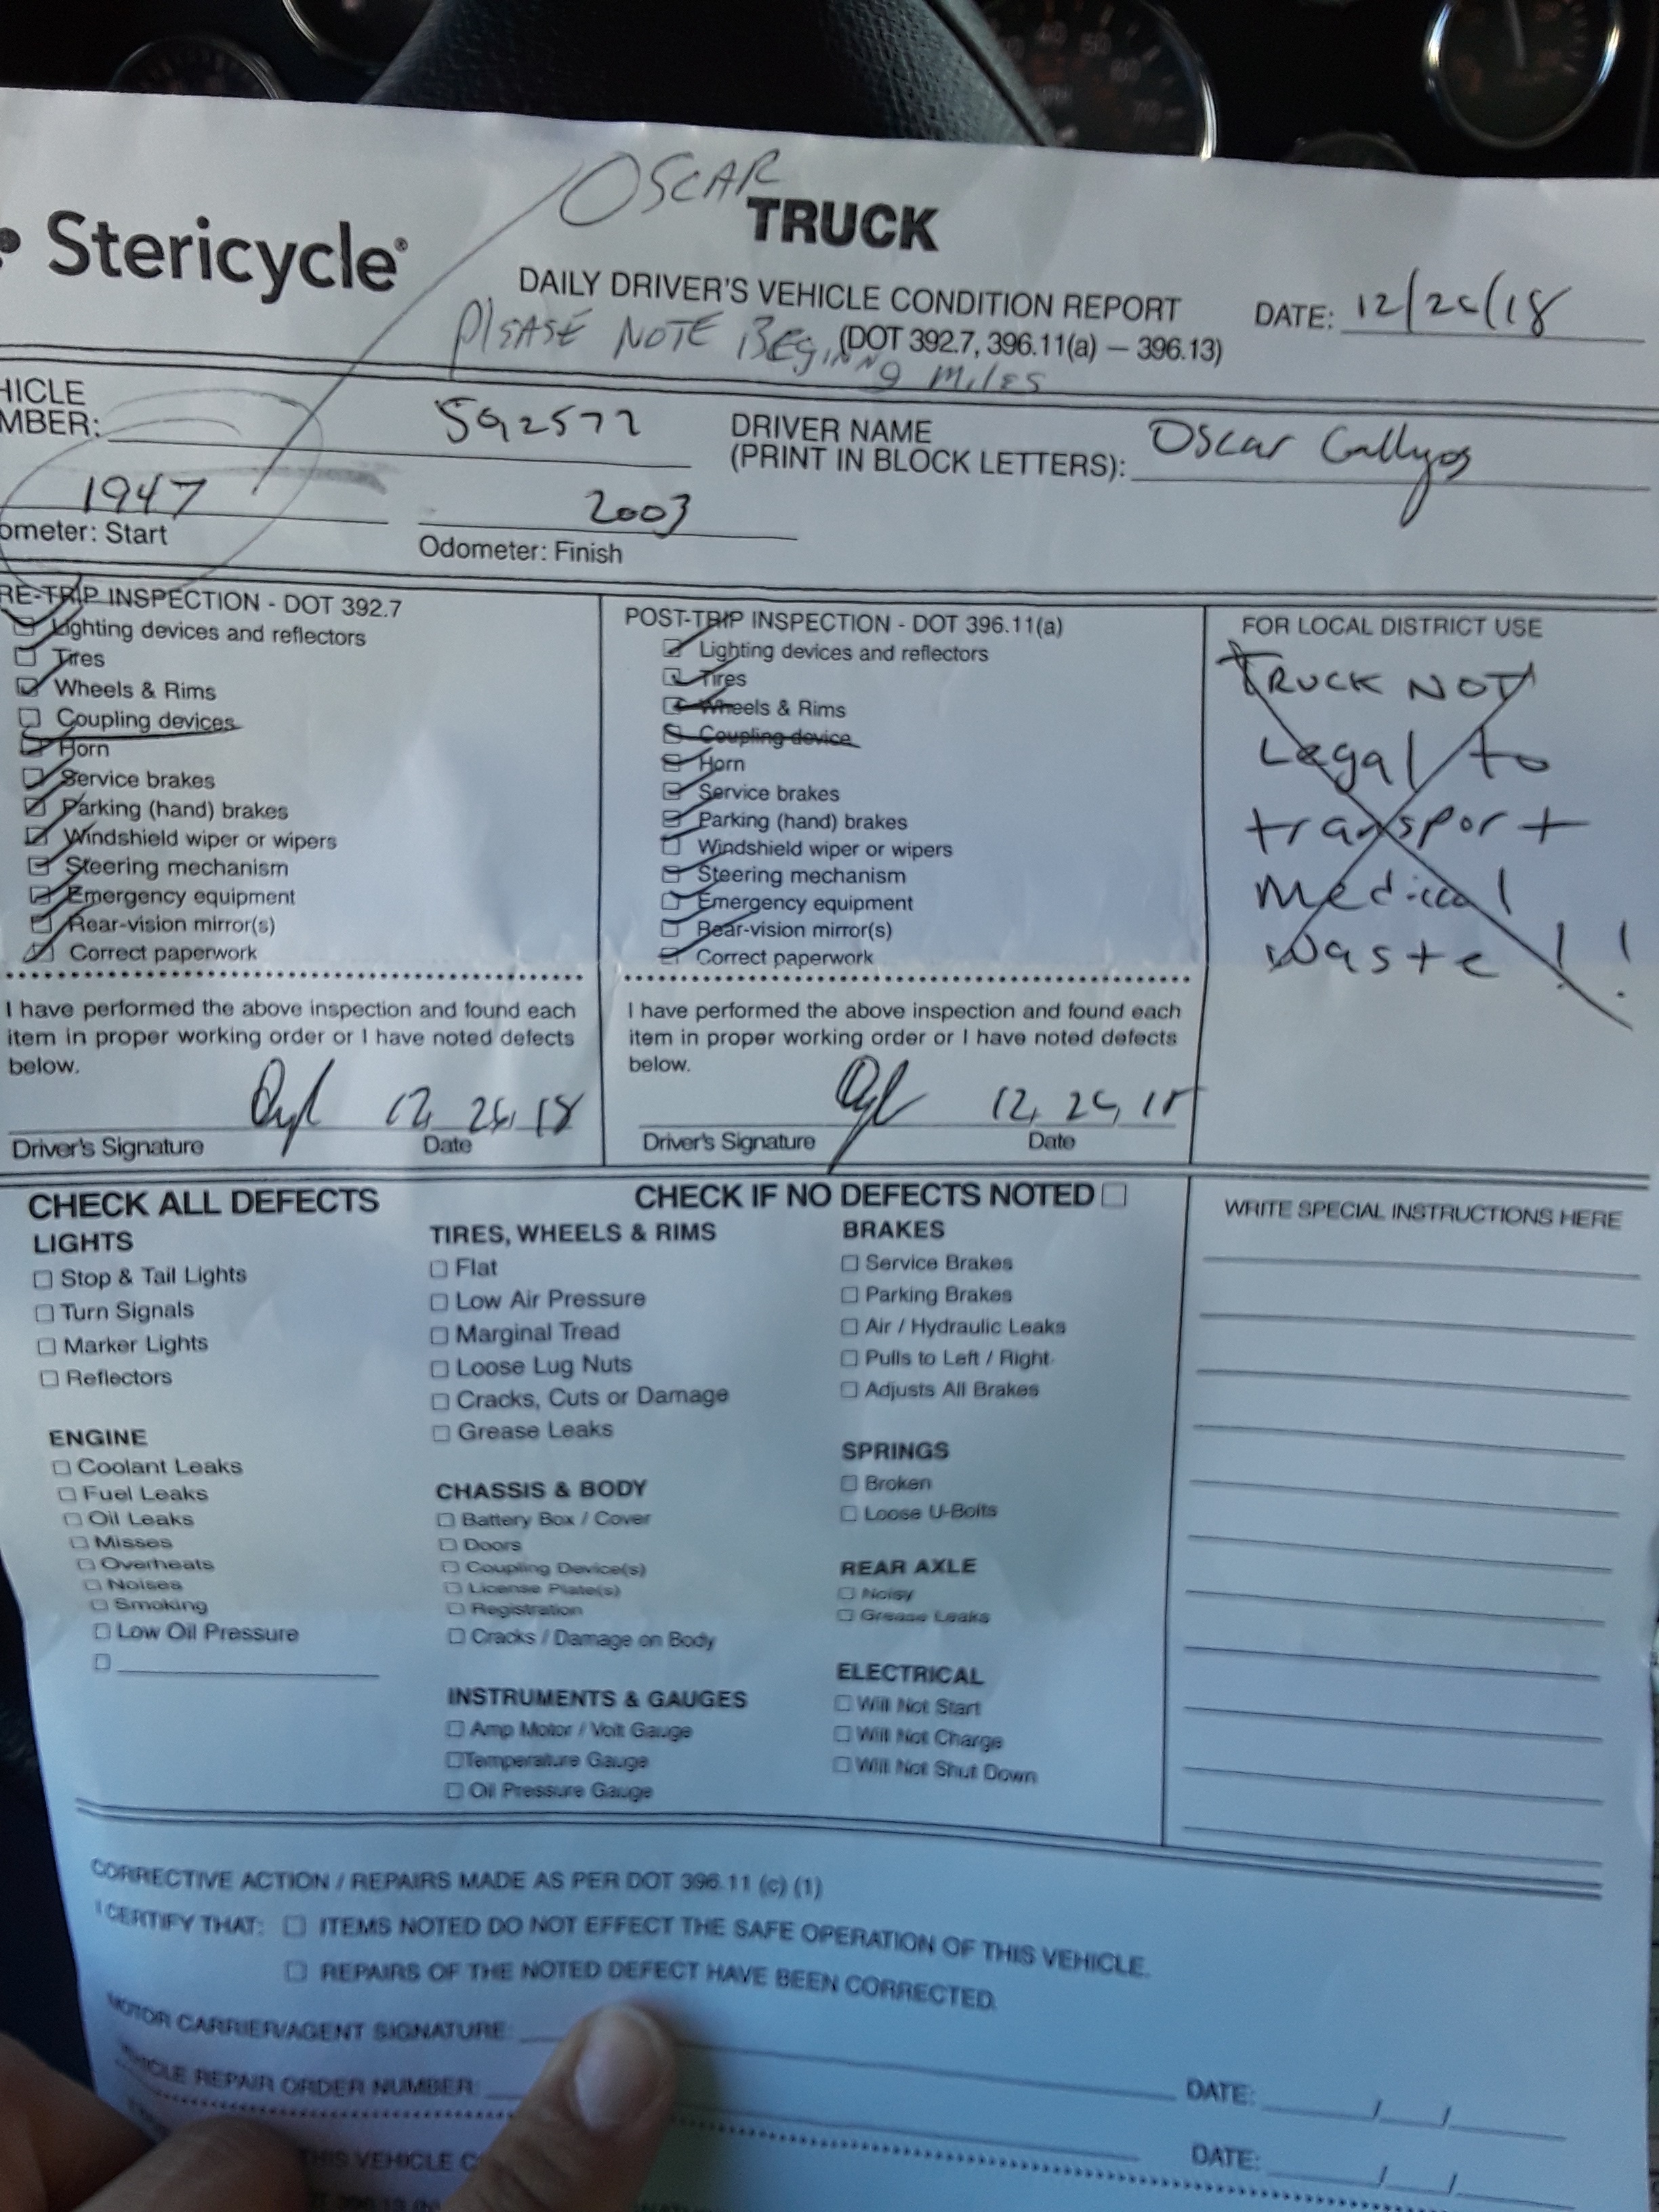 OSCAR
Stericycle®
TRUCK
DAILY DRIVER'S VEHICLE CONDITION REPORT
DATE: 12/26/18
(DOT 392.7, 396.11(a) — 396.13)
PLEASE NOTE BEGINNING MILES
HICLE
MBER: 592577
DRIVER NAME
(PRINT IN BLOCK LETTERS): Oscar Gallegos
1947
2003
ometer: Start
Odometer: Finish
RE-TRIP INSPECTION - DOT 392.7
Lighting devices and reflectors
Tires
Wheels & Rims
Coupling devices
Horn
Service brakes
Parking (hand) brakes
Windshield wiper or wipers
Steering mechanism
Emergency equipment
Rear-vision mirror(s)
Correct paperwork
I have performed the above inspection and found each
item in proper working order or I have noted defects
below.
12, 26, 18
Driver's Signature Date
POST-TRIP INSPECTION - DOT 396.11(a)
Lighting devices and reflectors
Tires
Wheels & Rims
Coupling device
Horn
Service brakes
Parking (hand) brakes
Windshield wiper or wipers
Steering mechanism
Emergency equipment
Rear-vision mirror(s)
Correct paperwork
I have performed the above inspection and found each
item in proper working order or I have noted defects
below.
12, 26, 18
Driver's Signature Date
FOR LOCAL DISTRICT USE
TRUCK NOT
Legal to
transport
Medical
waste !!
CHECK ALL DEFECTS
CHECK IF NO DEFECTS NOTED
LIGHTS
Stop & Tail Lights
Turn Signals
Marker Lights
Reflectors
ENGINE
Coolant Leaks
Fuel Leaks
Oil Leaks
Misses
Overheats
Noises
Smoking
Low Oil Pressure
TIRES, WHEELS & RIMS
Flat
Low Air Pressure
Marginal Tread
Loose Lug Nuts
Cracks, Cuts or Damage
Grease Leaks
CHASSIS & BODY
Battery Box / Cover
Doors
Coupling Device(s)
License Plate(s)
Registration
Cracks / Damage on Body
INSTRUMENTS & GAUGES
Amp Motor / Volt Gauge
Temperature Gauge
Oil Pressure Gauge
BRAKES
Service Brakes
Parking Brakes
Air / Hydraulic Leaks
Pulls to Left / Right
Adjusts All Brakes
SPRINGS
Broken
Loose U-Bolts
REAR AXLE
Noisy
Grease Leaks
ELECTRICAL
Will Not Start
Will Not Charge
Will Not Shut Down
WRITE SPECIAL INSTRUCTIONS HERE
CORRECTIVE ACTION / REPAIRS MADE AS PER DOT 396.11 (c) (1)
I CERTIFY THAT: ITEMS NOTED DO NOT EFFECT THE SAFE OPERATION OF THIS VEHICLE.
REPAIRS OF THE NOTED DEFECT HAVE BEEN CORRECTED.
MOTOR CARRIER/AGENT SIGNATURE:
DATE: / /
VEHICLE REPAIR ORDER NUMBER:
DATE: / /
THIS VEHICLE C